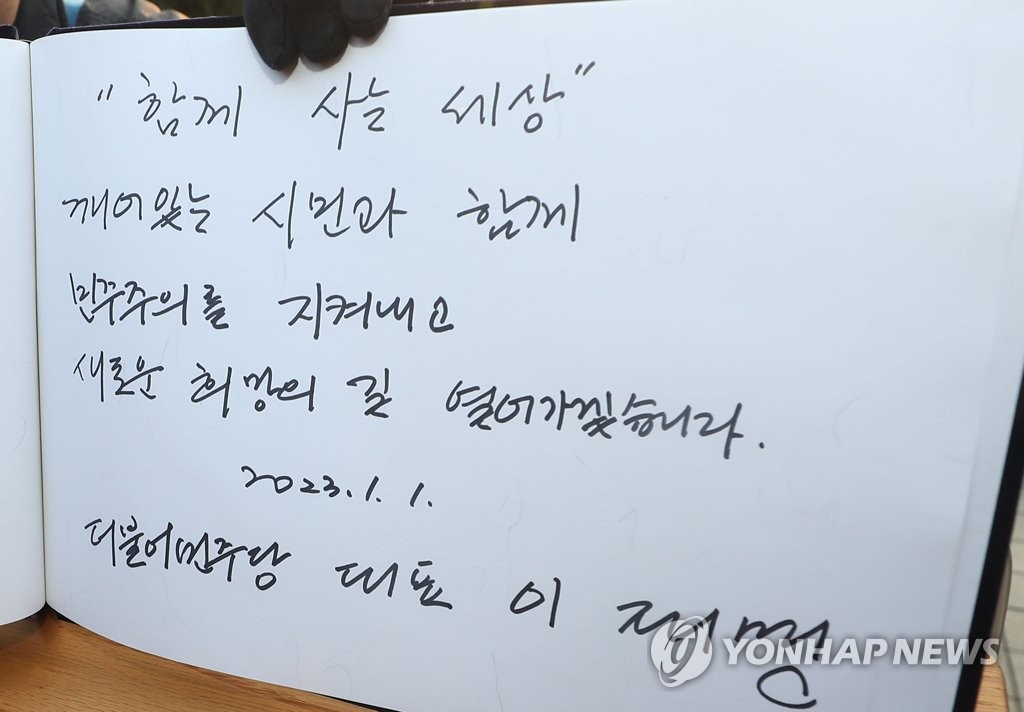 "함께 사는 세상"
깨어있는 시민과 함께
민주주의를 지켜내고
새로운 희망의 길 열어가겠습니다.
2023.1.1.
더불어민주당 대표 이재명
YONHAP NEWS